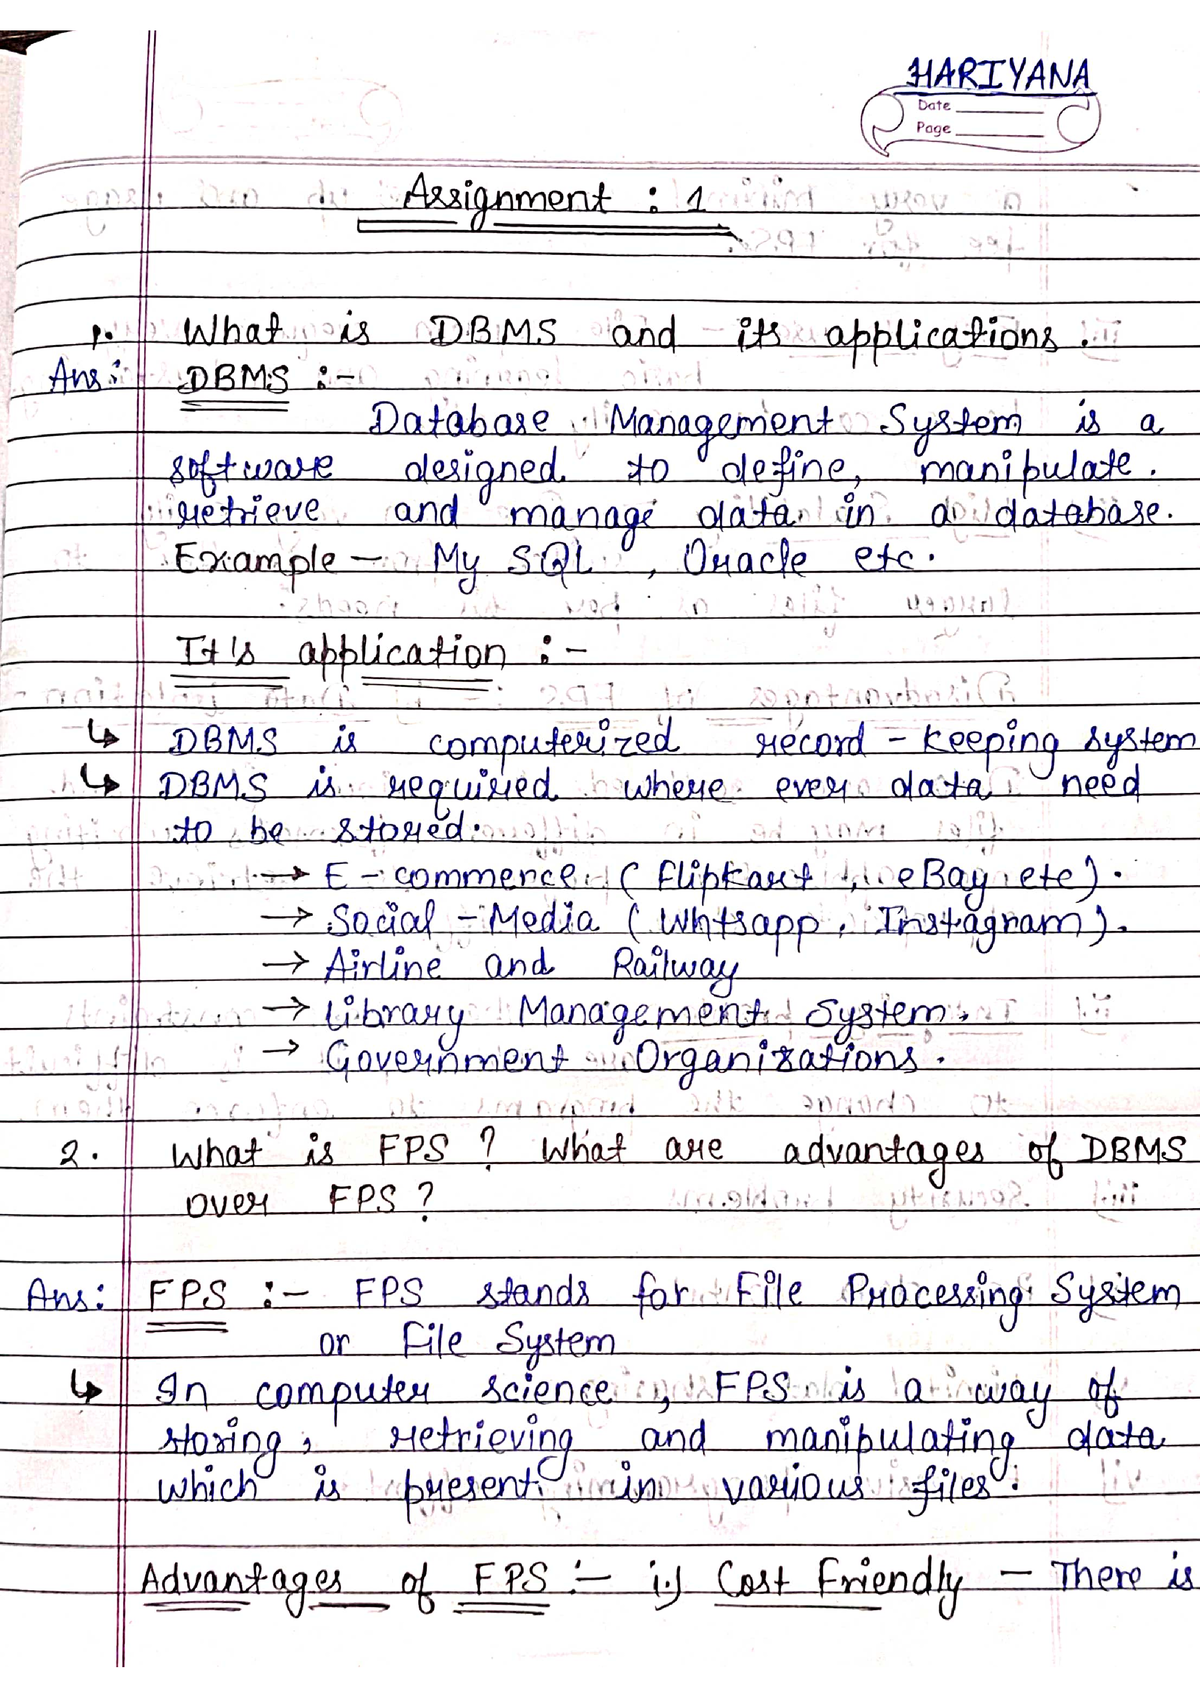 HARIYANA
Date
Page
Assignment : 1
1. What is DBMS and its applications.
Ans: DBMS :-
Database Management System is a
software designed to define, manipulate.
retrieve and manage data in a database.
Example - My SQL, Oracle etc.
It's application :-
↳ DBMS is computerized record - keeping system
↳ DBMS is required where ever data need
to be stored.
→ E - commerce ( Flipkart, eBay etc).
→ Social - Media ( Whtsapp, Instagram).
→ Airline and Railway
→ Library Management System.
→ Government Organizations.
2. What is FPS ? What are advantages of DBMS
over FPS ?
Ans: FPS :- FPS stands for File Processing System
or File System
↳ In computer science, FPS is a way of
storing, retrieving and manipulating data
which is present in various files.
Advantages of FPS :- i.) Cost Friendly - There is